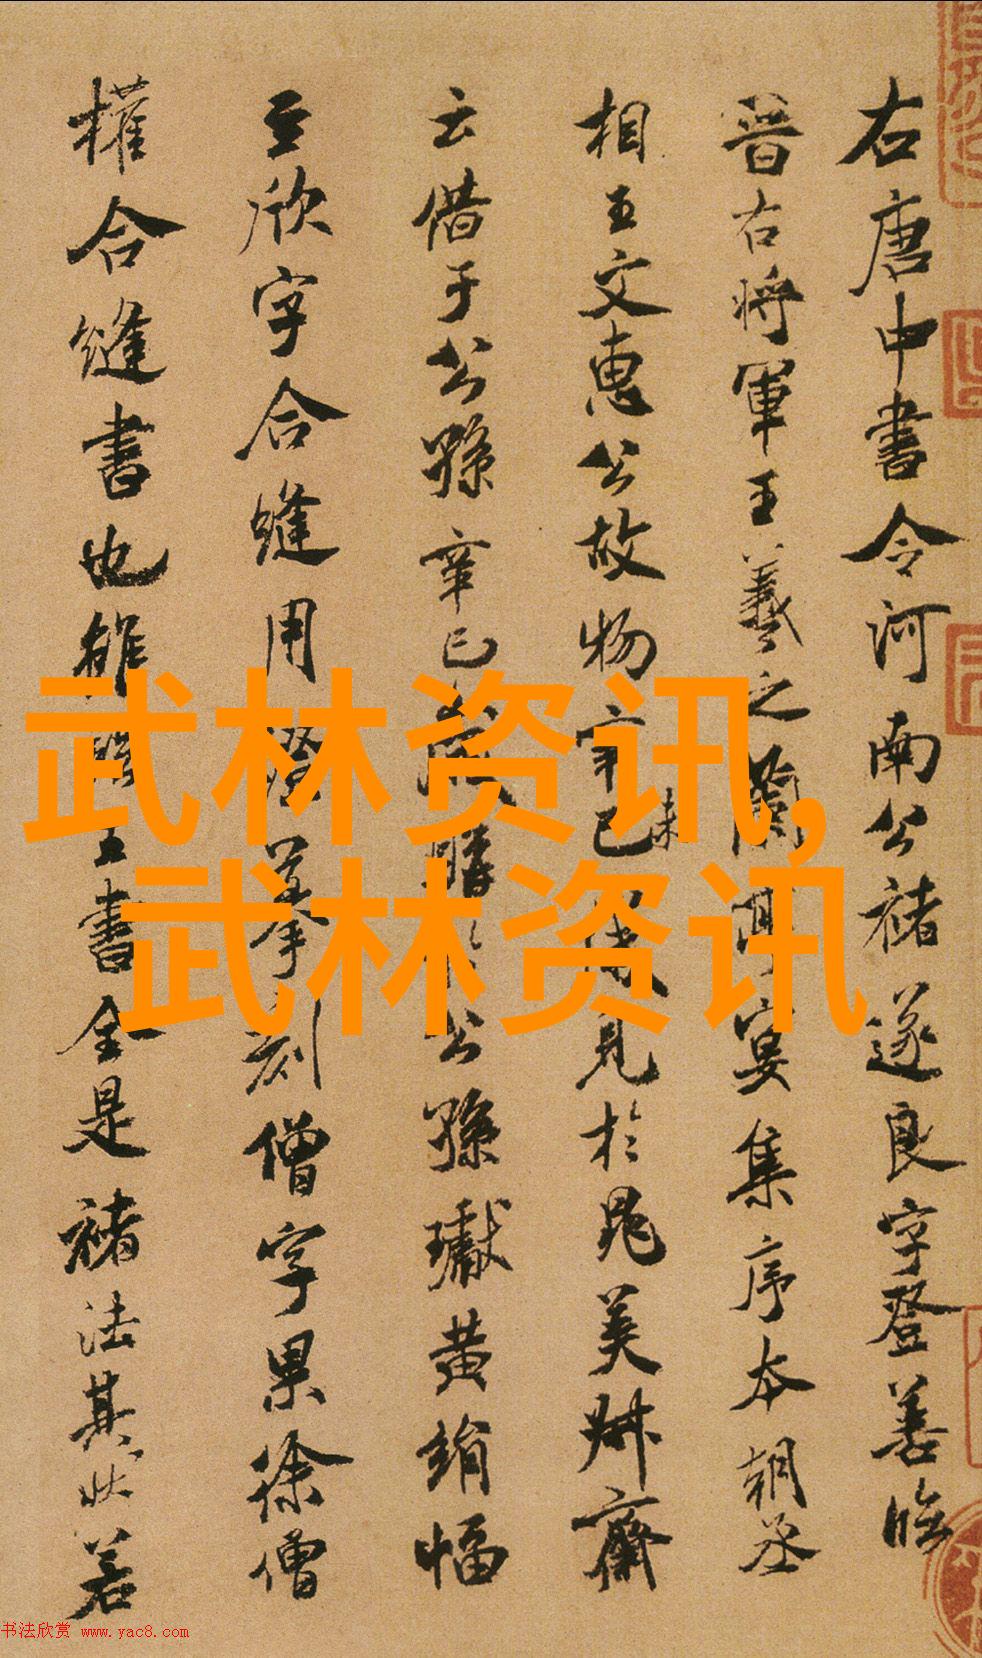 右唐中書令河南公褚遂良字登善臨
晉右將軍王羲之蘭亭宴集序本朝丞
相王文惠公故物辛巳歲見於晁美叔齋
云借于公孫辛巳公孫瓛黃絹幅
至欣字合縫用證摹刻僧字果徐僧
權合縫書也雖王書全是褚法其狀若
武林资讯,
武林资讯
书法欣赏 www.yac8.com